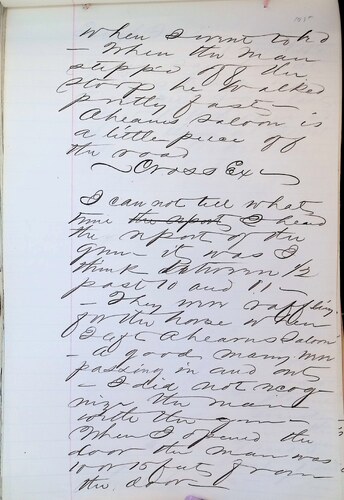 when I went to bed
- When the man
steppd off the
stoop he walked
pretty fast -
Ahearns saloon is
a little piece off
the road
Cross Ex
I can not tell what
time the report I heard
the report of the
gun - it was I
think between 1/2
past 10 and 11 -
- They were raffling
for the horse when
I left Ahearns Saloon
- a good many were
passing in and out
- I did not recog-
nize the man
with the gun -
When I opened the
door the man was
10 or 15 feet from
the door -